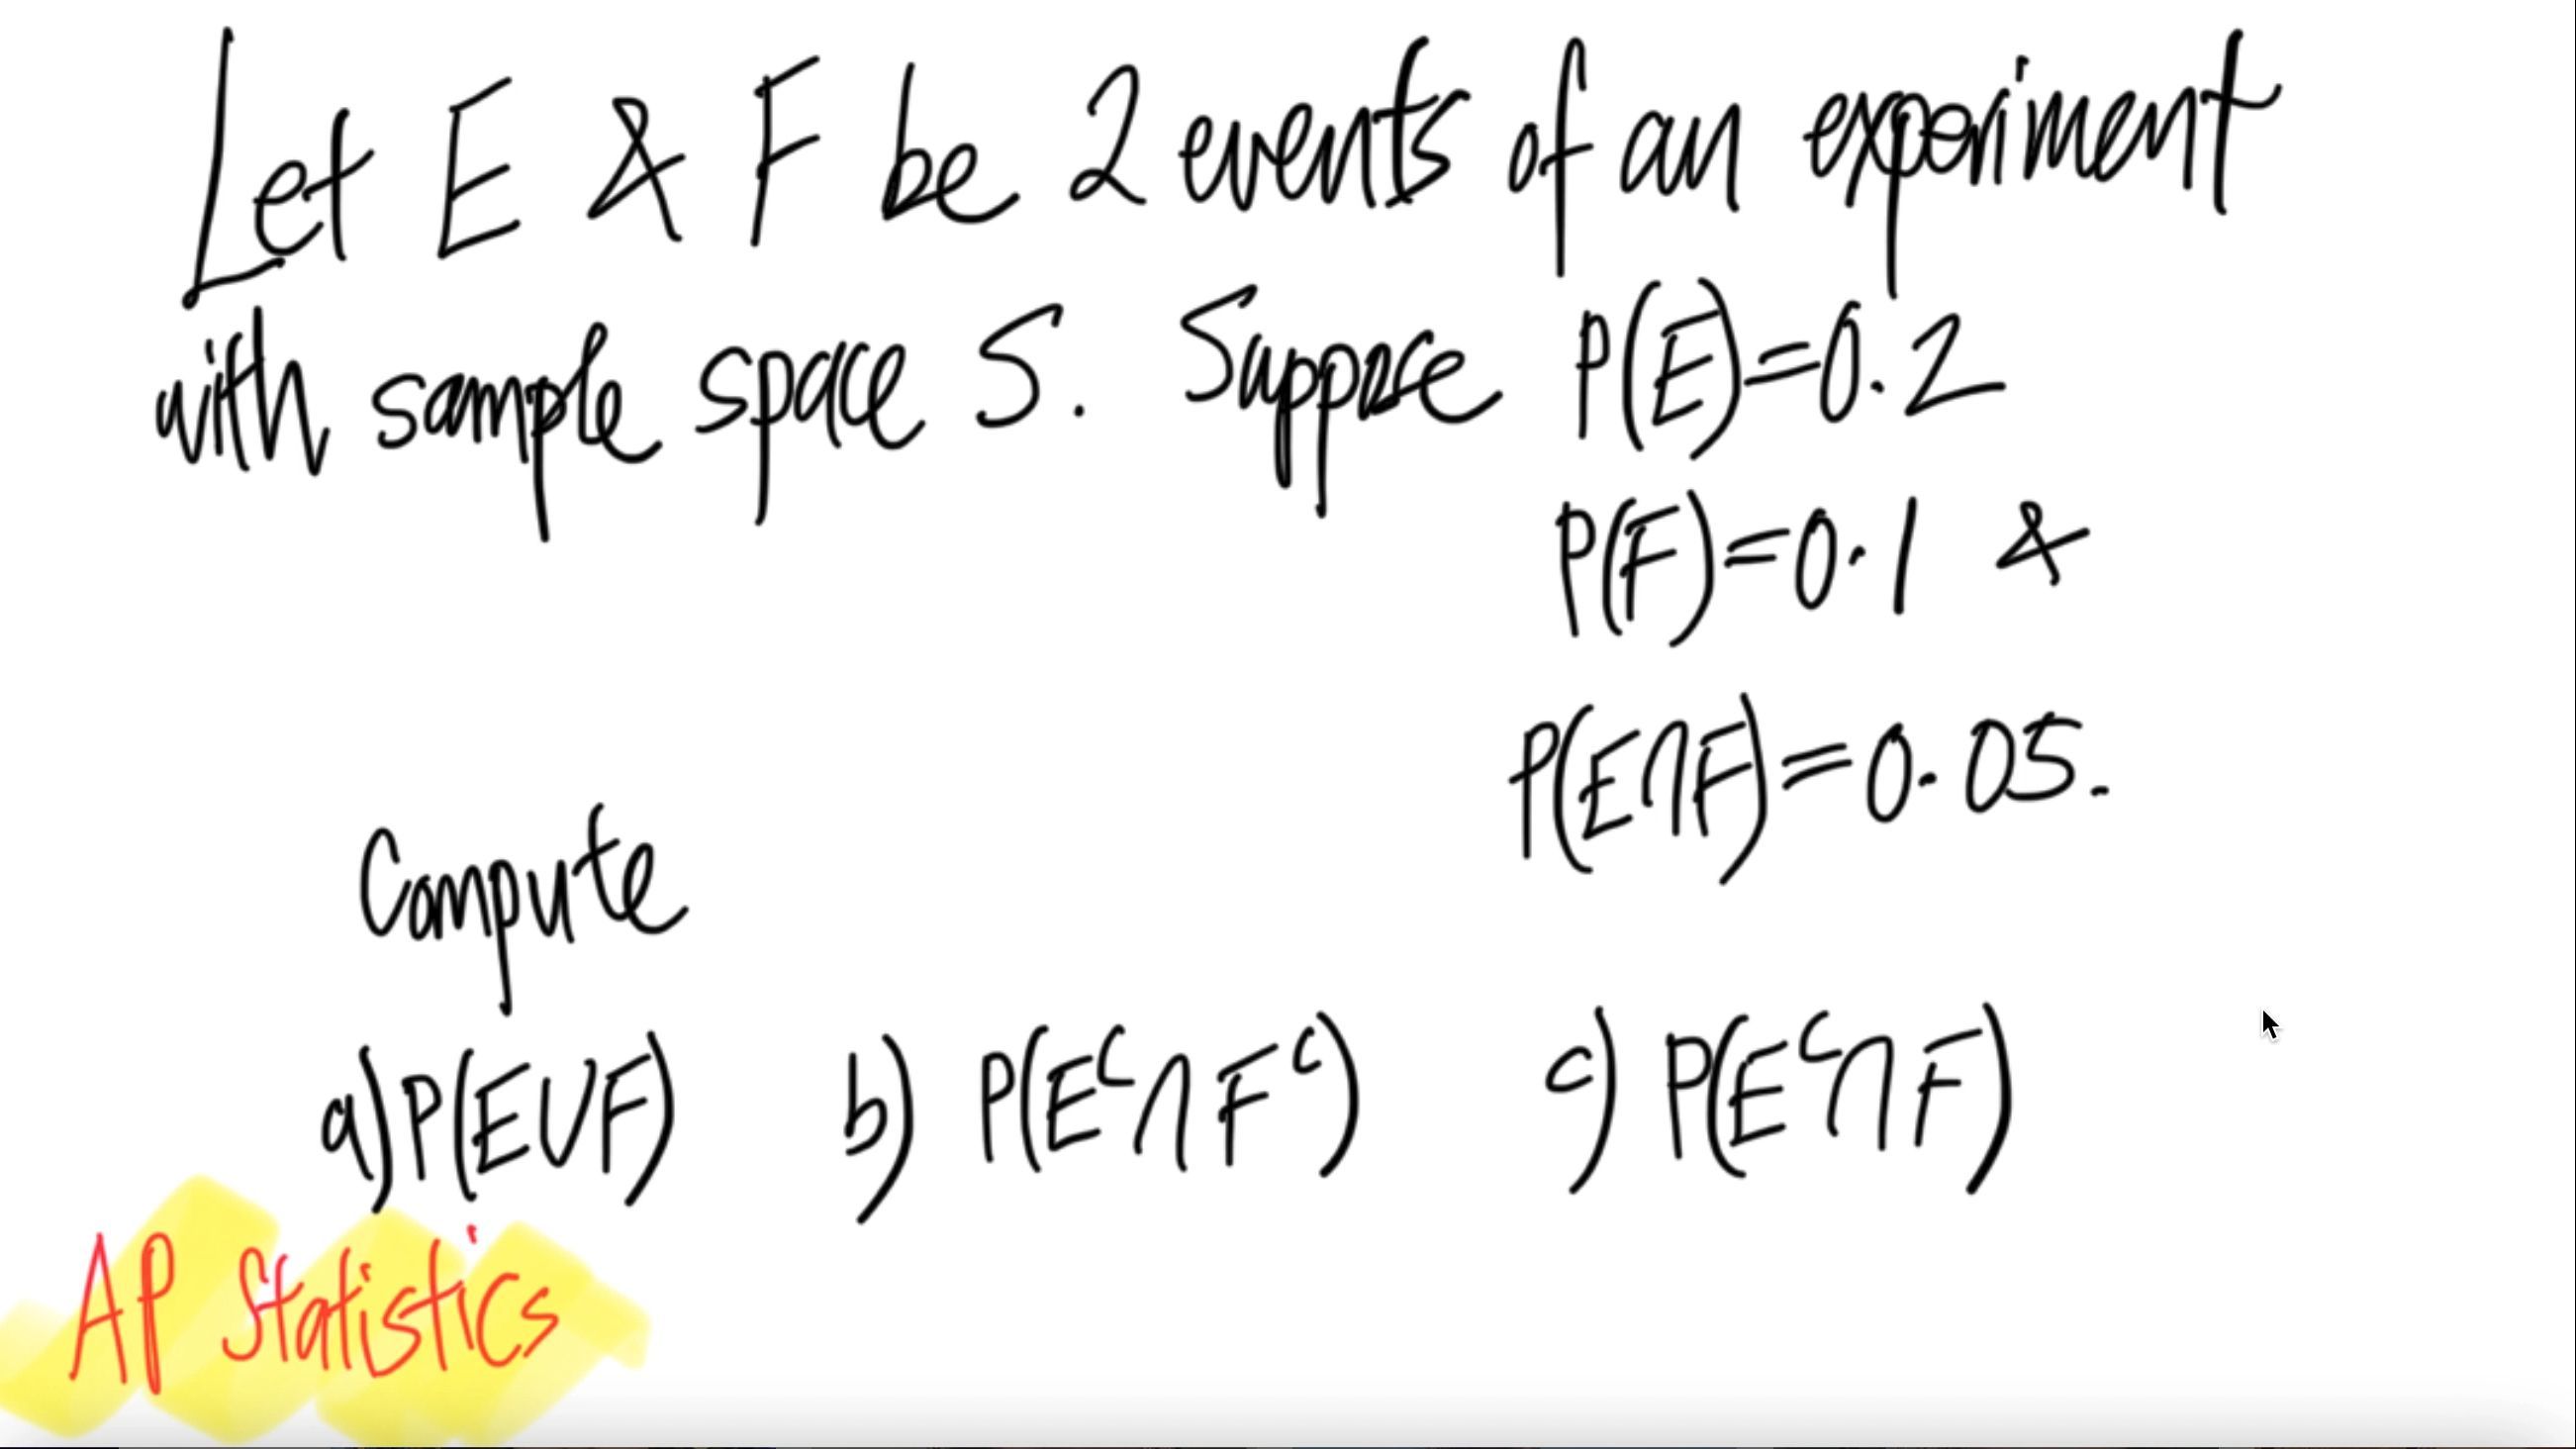 Let E & F be 2 events of an experiment
with sample space S. Suppose P(E)=0.2
P(F)=0.1 &
P(E∩F)=0.05.
Compute
a) P(E∪F) b) P(Eᶜ∩Fᶜ) c) P(Eᶜ∩F)
AP Statistics